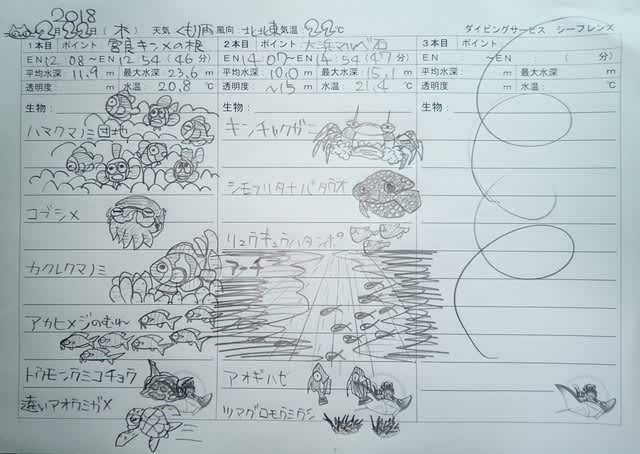 2018
2月22日（木） 天気 くもり雨 風向：北北東 気温：22℃ ダイビングサービス シーフレンズ
1本目 ポイント 宮良キンメの根
EN 12:08～EN 12:54（46分）
平均水深：11.9m 最大水深：23.6m
透明度： m 水温：20.8℃
生物：
ハマクマノミ団地
コブシメ
カクレクマノミ
アカヒメジのむれ
トウモンウミコチョウ
遠いアオウミガメ
2本目 ポイント 大浜マルベ石
EN 14:07～EN 14:54（47分）
平均水深：10.0m 最大水深：15.1m
透明度：～15m 水温：21.4℃
生物：
キンチャクガニ
シモフリタナバタウオ
リュウキュウハタンポ
アーチ
アオギハゼ
ツマグロモウミウシ
3本目 ポイント
EN ： ～EN ： （ 分）
平均水深： m 最大水深： m
透明度： m 水温： ℃
生物：